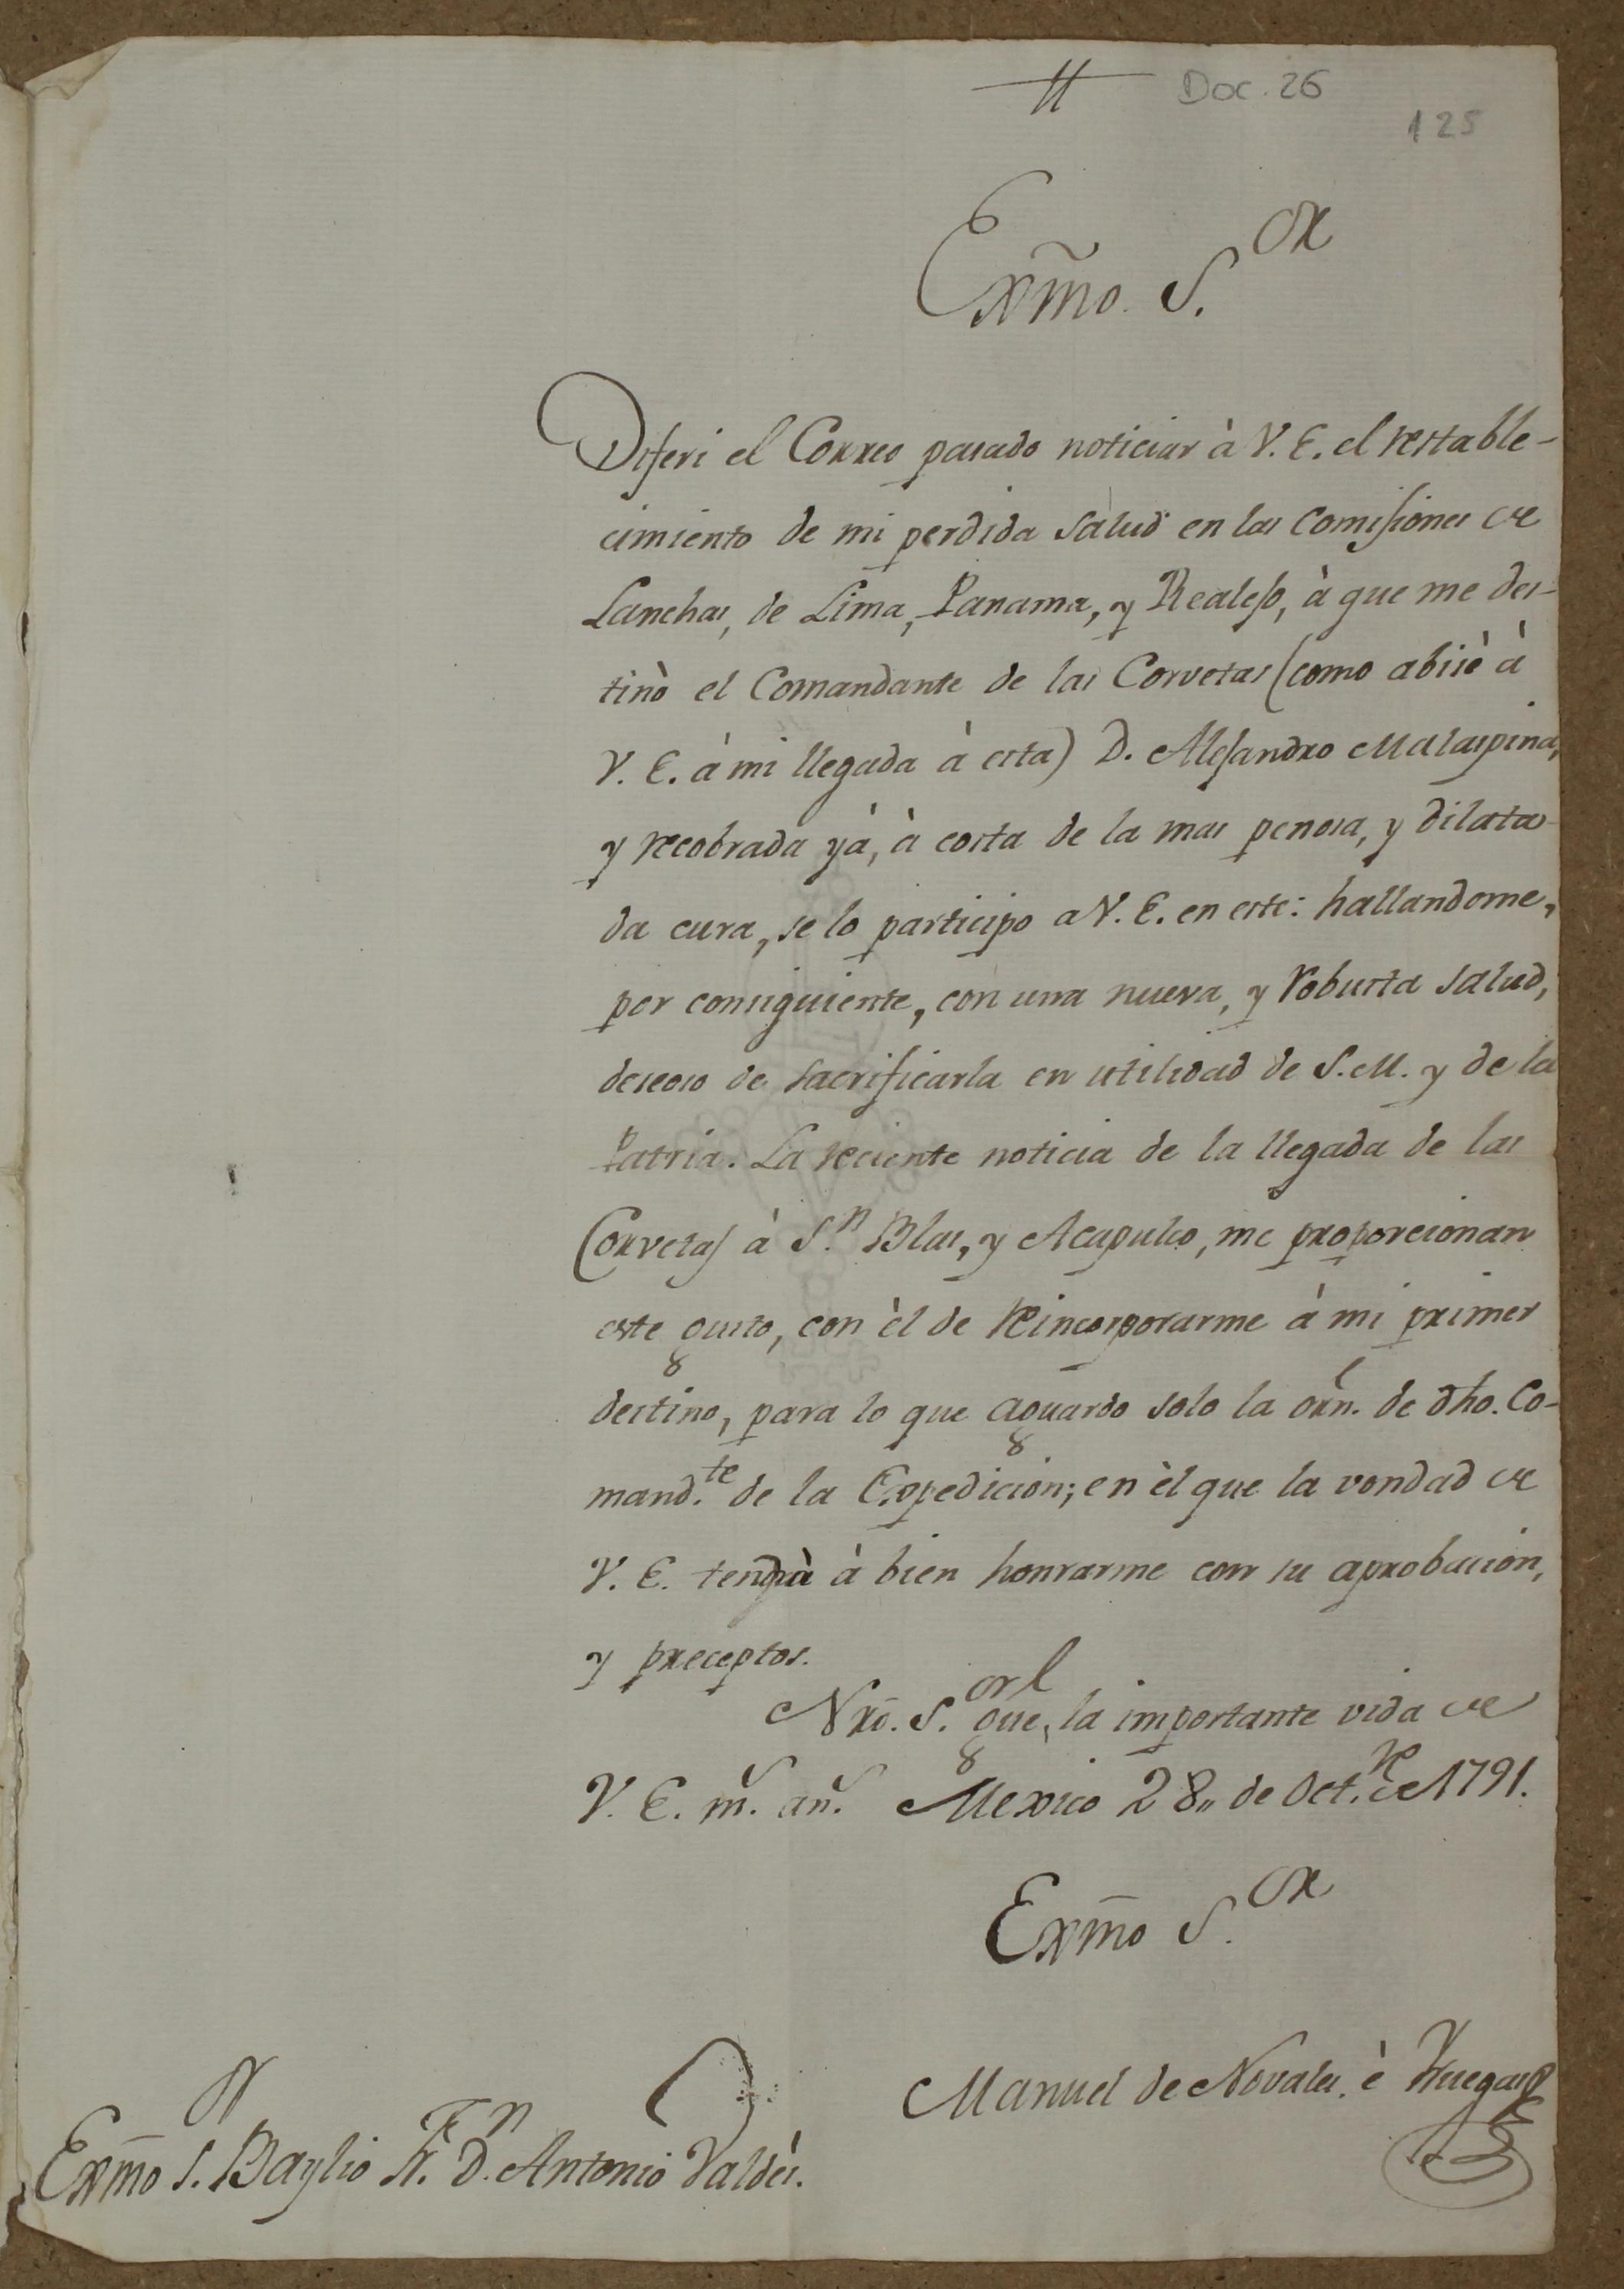 Doc. 26
125
Exmo. S.or
Diferi el Correo pasado noticiar à V. E. el restable-
cimiento de mi perdida salud en las Comisiones de
Lanchas, de Lima, Panama, y Realejo, à que me des-
tinò el Comandante de las Corvetas (como abisè à
V. E. à mi llegada à esta) D. Alejandro Malaspina,
y recobrada yà, à costa de la mas penosa, y dilata-
da cura, se lo participo a V. E. en este: hallandome,
por consiguiente, con una nueva, y robusta salud,
deseoso de sacrificarla en utilidad de S. M. y de la
Patria. La reciente noticia de la llegada de las
Corvetas à S.n Blas, y Acapulco, me proporcionan
este gusto, con èl de reincorporarme à mi primer
destino, para lo que aguardo solo la orn. de dho. Co-
mand.te de la Expedicion; en èl que la vondad de
V. E. tendrà à bien honrarme con su aprobacion,
y preceptos.
Nro. S.or gue. la importante vida de
V. E. m.s an.s Mexico 28,, de Oct.re de 1791.
Exmo S.or
Manuel de Novales è
Exmo S.r Baylio Fr. D.n Antonio Valdès.